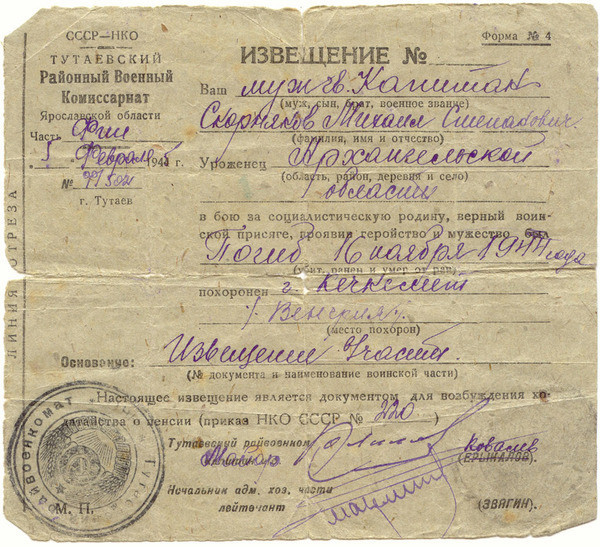 СССР—НКО
ТУТАЕВСКИЙ
Районный Военный
Комиссариат
Ярославской области
Часть
5 февраля 1945 г.
№
г. Тутаев
ЛИНИЯ ОТРЕЗА
Форма № 4
ИЗВЕЩЕНИЕ №
Ваш муж гв. Капитан
(муж, сын, брат, военное звание)
Скорняков Михаил Степанович
(фамилия, имя и отчество)
Уроженец Архангельской
(область, район, деревня и село)
области
в бою за социалистическую родину, верный воин-
ской присяге, проявив геройство и мужество был
Погиб 16 ноября 1944 года
(убит, ранен и умер от ран)
похоронен г. Кечкемет
/Венгрия/.
(место похорон)
Основание: Извещение части.
(№ документа и наименование воинской части)
Настоящее извещение является документом для возбуждения хо-
датайства о пенсии (приказ НКО СССР № 220)
Тутаевский райвоенком
майор Ковалев
(ЕРЫКАЛОВ).
Начальник адм. хоз. части
лейтенант (ЗВЯГИН).
М. П.